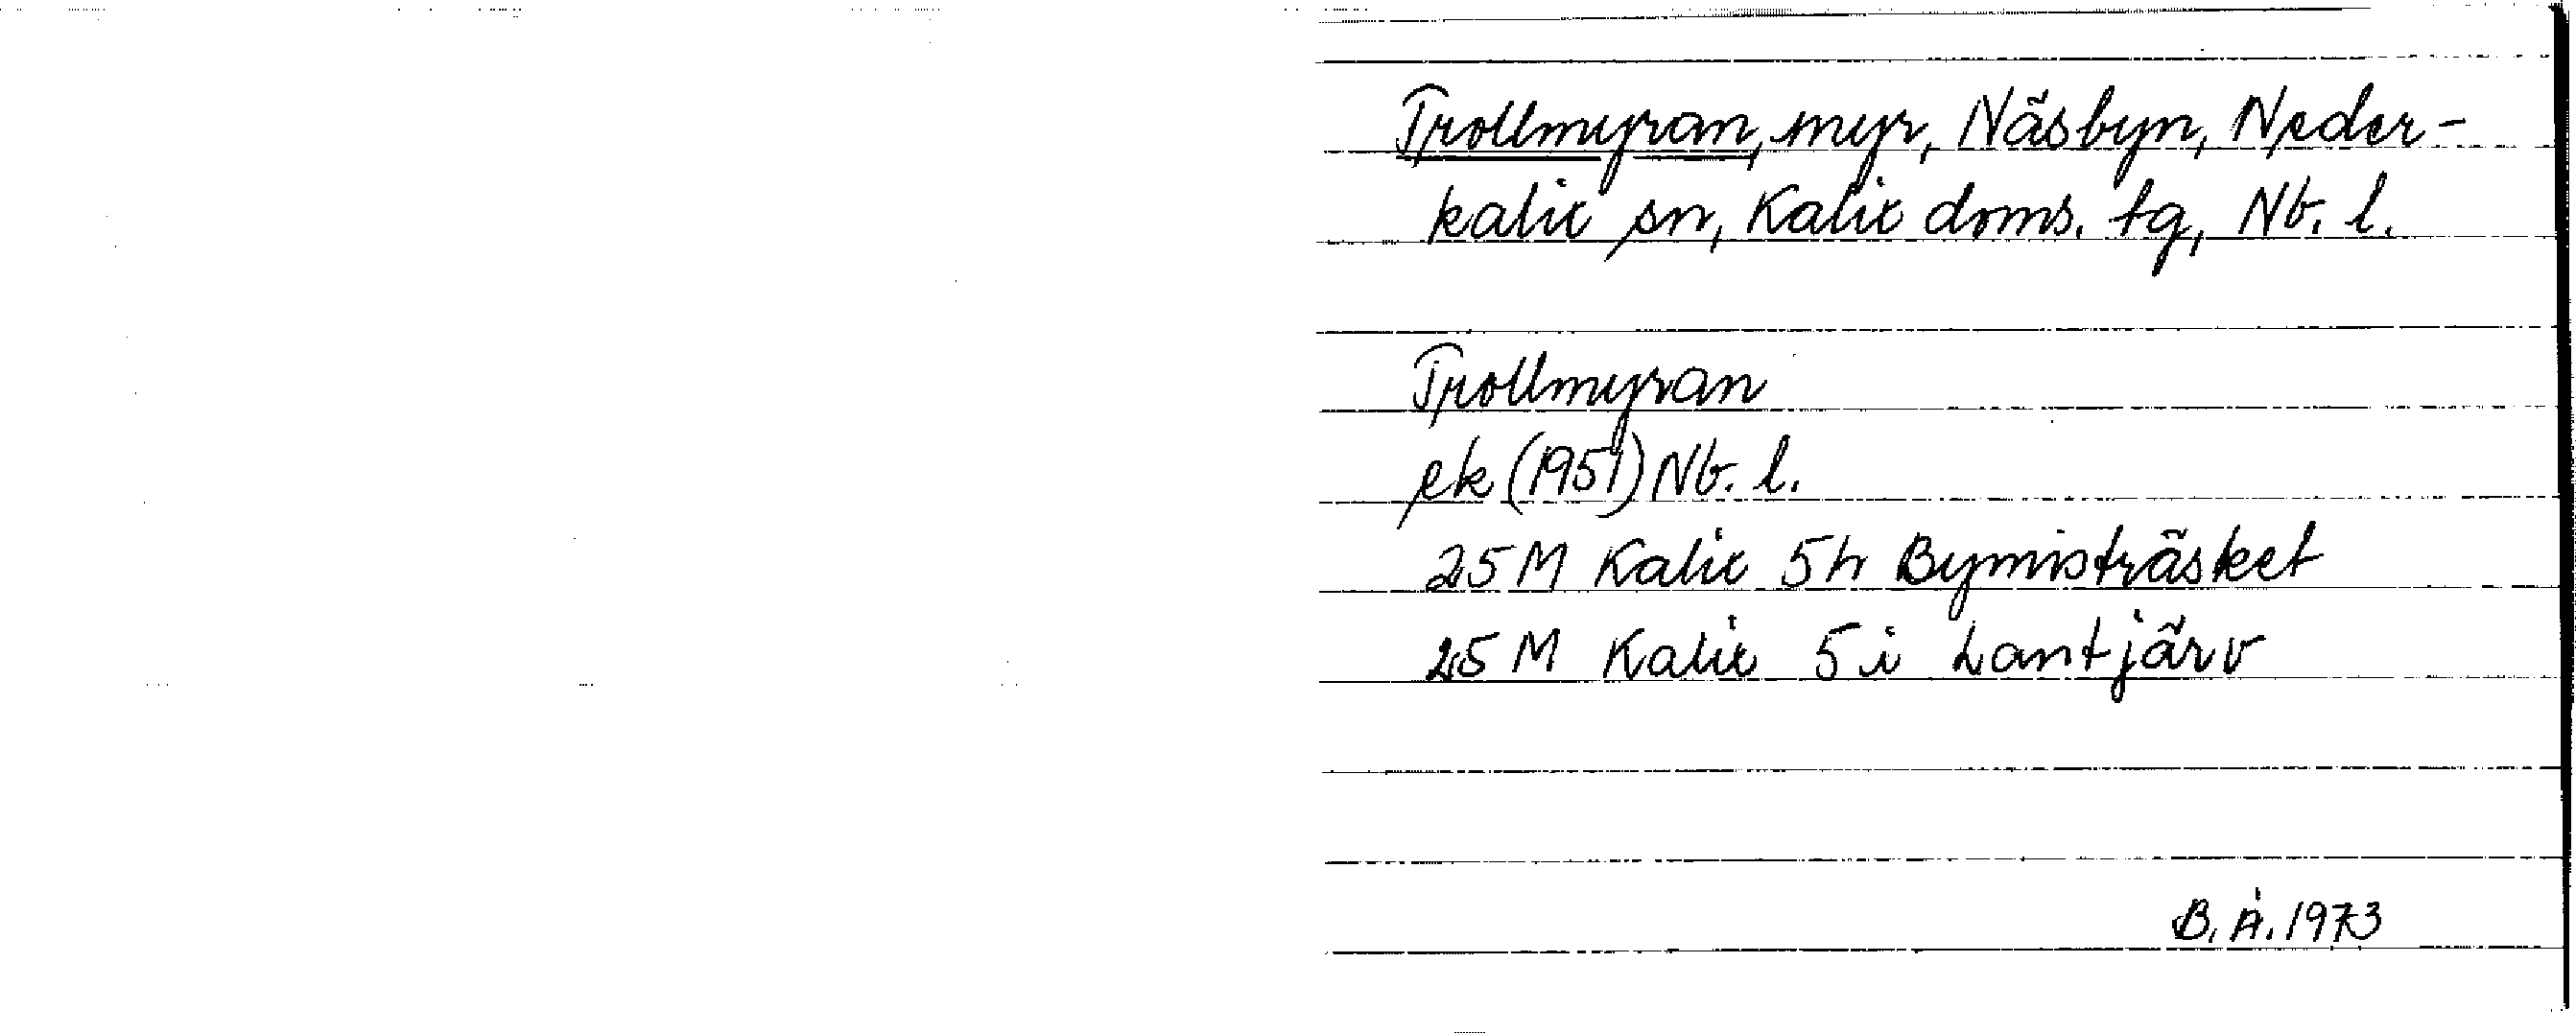 Trollmyran, myr, Näsbyn, Neder-
kalix sn, Kalix doms. tg, Nb. l.
Trollmyran
ek (1951) Nb. l.
25 M Kalix 5h Bymisträsket
25 M Kalix 5i Lantjärv
B. Å. 1973